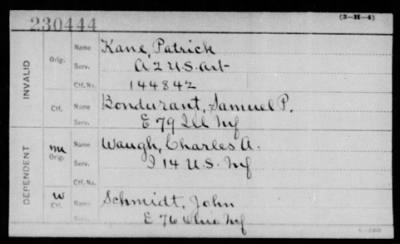 230444
(3-H-4)
INVALID
Orig.
Name Kane, Patrick
Serv. A, 2 U.S. Art
Ctf.No. 144842
Ctf.
Name Bondurant, Samuel P.
Serv. E 79 Ill Inf
DEPENDENT
m
Orig.
Name Waugh, Charles A.
Serv. I 14 U.S. Inf
Ctf. No.
W
Ctf.
Name Schmidt, John
Serv. E 76 Ohio Inf